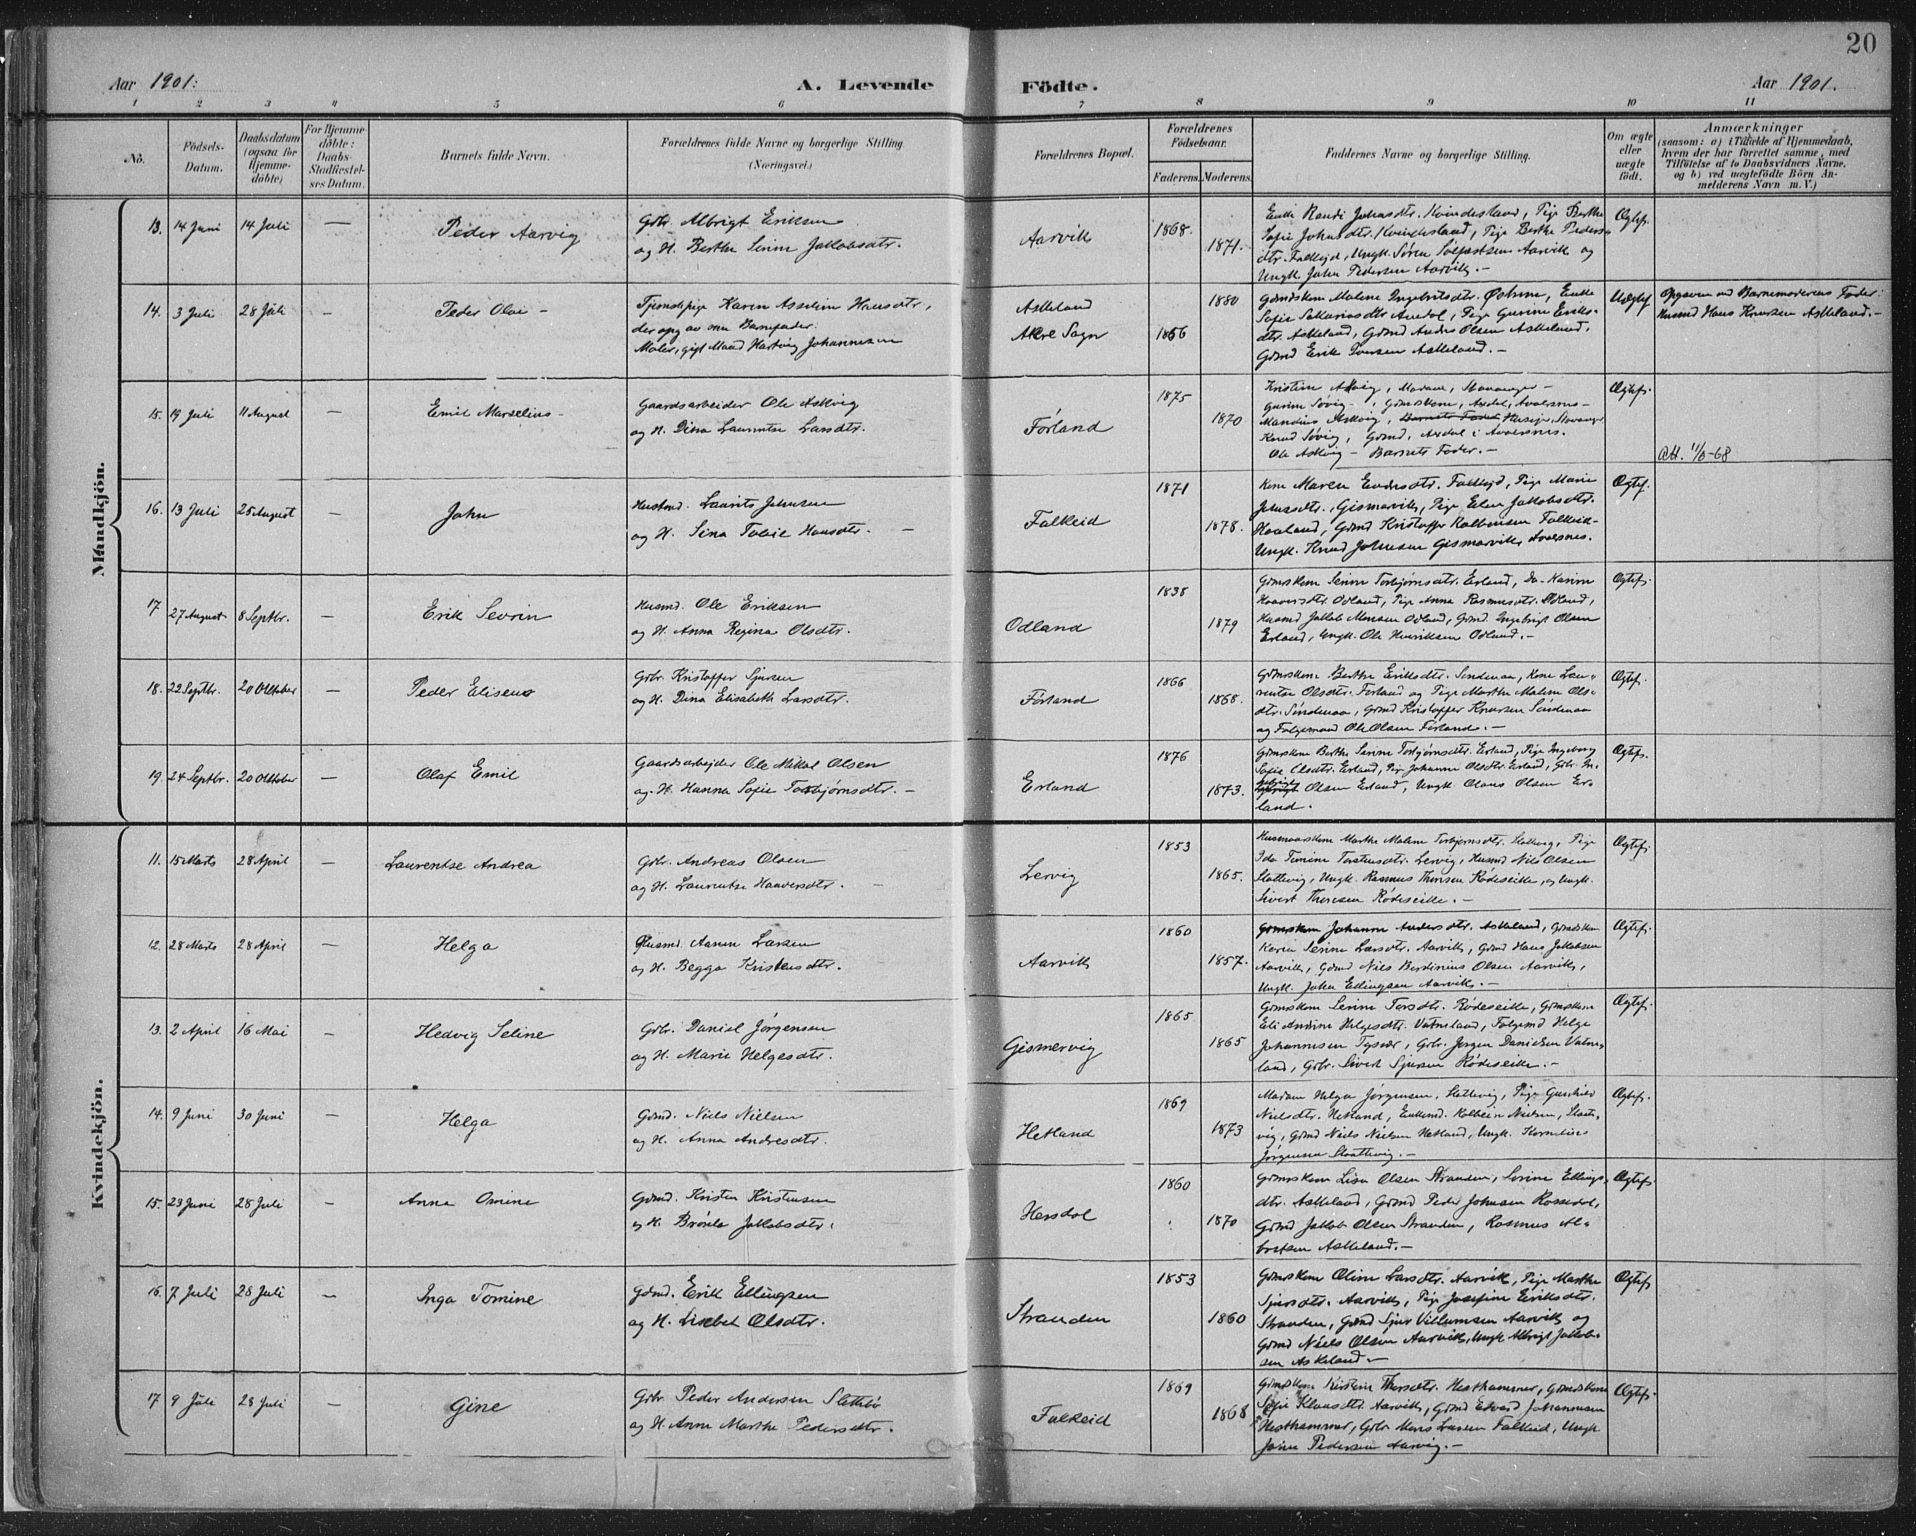 20
Aar 1901.
A. Levende
Födte.
Aar 1901.
1 2 3 4 5 6 7 8 9 10 11
No.
Födsels-
Datum.
Daabsdatum
(ogsaa for
Hjemme-
döbte)
For Hjemme-
döbte:
Daabs-
Stadfæstel-
ses Datum.
Barnets fulde Navn.
Forældrenes fulde Navne og borgerlige Stilling.
(Næringsvei.)
Forældrenes Bopæl.
Forældrenes
Födselsaar.
Faderens. Moderens.
Faddernes Navne og borgerlige Stilling.
Om ægte
eller
uægte
födt.
Anmærkninger
(saasom: a) i Tilfælde af Hjemmedaab,
hvem der har forrettet samme, med
Tilföielse af to Daabsvidners Navne,
og b) ved uægtefödte Börn An-
melderens Navn m. V.)
Mandkjön.
13. 14 Juni 14 Juli — Peder Aarvig
Gbr. Albrigt Eriksen
og H. Berthe Serine Jakobsdtr.
Aarvik 1868. 1871.
Enke Randi Johnsdtr. Kvindesland, Pige Berthe
Sofie Johnsdtr. Kvindesland, Pige Berthe Peders-
dtr. Falkejd, Ungk. Søren Salfastsen Aarvik og
Ungk. John Pedersen Aarvik. —
Ægtef.
14. 3 Juli 28 Juli — Peder Olai —
Tjenestepige Karen Asseline Hansdtr.,
der opg av som Barnefader:
Maler, gift Mand Hartvig Johannesen
Askeland
Akre Sogn
1880 1856
Gdmdskone Malene Ingebrigtsdtr. Øshus, Enke
Sofie Sakariasdtr. Avdal, Pige Gurine Eriks-
dtr. Askeland, Gdmd Andres Olsen Askeland,
Gdmd Erik Iversen Askeland. —
Uægtef.
Opgaven ved Barnemoderens Fader:
Husmd Hans Knutsen Askeland. —
15. 19 Juli 11 August — Emil Marselius —
Gaardsarbeider Ole Askvig
og H. Dina Lauritse Larsdtr.
Förland 1875 1870
Kristine Askvig, Madame, Stavanger —
Gurine Søvig, Gdmdskone, Avdal, Avalsnes —
Mandius Askvig, Stavanger
Knud Søvig, Gdmd, Avdal i Avalsnes.
Ole Askvig — Barnets Fader. —
Ægtef.
Att. 11/6-68
16. 13 Juli 25 August — John
Husmd. Laurits Johnsen
og H. Sina Tobie Hansdtr. —
Falkeid 1871 1878.
Kone Maren Endresdtr. Falkejd, Pige Marie
Johnsdtr., Gismarvik, Pige Elen Jakobsdtr.
Haaland, Gdmd Kristoffer Kolbensen Falkeid —
Ungk. Knud Johnsen Gismarvik Avalsnes.
Ægtef.
17 27 August 8 Septbr. — Erik Sevrin
Husmd. Ole Eriksen
og H. Anna Regina Olsdtr.
Odland 1838 1879
Gdmdskone Serine Torbjørnsdtr. Erland, Do- Karine
Haaversdtr. Odland, Pige Anna Rasmusdtr. Odland,
Husmd Jakob Monsen Odland, Gdmd Ingebrigt Olsen
Erland, Ungk. Ole Henriksen Odland. —
Ægtef.
18. 22 Septbr. 20 Oktober — Peder Eliseus
Gbr. Kristoffer Sjursen
og H. Dina Elisabeth Larsdtr.
Förland 1866 1868.
Gdmdskone Berthe Eriksdtr. Sindenaa, Kone Lau-
rentse Olsdtr. Förland og Pige Marthe Malene Ols-
dtr. Sindenaa, Gdmd Kristoffer Knutsen Sindenaa
og Følgemand Ole Olsen Førland. —
Ægtef.
19. 24 Septbr. 20 Oktober — Olaf Emil
Gaardsarbejder Ole Mikal Olsen
og H. Hanna Sofie Torbjørnsdtr. —
Erland 1876 1873.
Gdmdskone Berthe Serine Torbjørnsdtr. Erland, Pige Ingeborg
Sofie Olsdtr. Erland, Pige Johanne Olsdtr. Erland, Gbr. In-
gebrigt Olsen Erland, Ungk. Olaus Olsen Er-
land.
Ægtef.
Kvindekjön.
11. 15 Marts 28 April — Laurentse Andrea
Gbr. Andreas Olsen
og H. Laurentse Haaversdtr. —
Lervig 1853 1865.
Husmandskone Marthe Malene Torbjørnsdtr. Slattevig, Pige
Ida Tomine Torstensdtr. Lervig, Husmd Nils Olsen
Slattevig, Ungk. Rasmus Thorsen Rødeseike, og Ungk.
Sivert Thorsen Rødeseike. —
Ægtef.
12. 28 Marts 28 April — Helga
Husmd. Aanen Larsen
og H. Begga Kristensdtr.
Aarvik 1860 1857.
Gdmdskone Johanne Andersdtr. Askeland, Gdmdskone
Karen Serine Larsdtr. Aarvik, Gdmd Hans Jakobsen
Aarvik, Gdmd Nils Berdinius Olsen Aarvik,
Ungk. John Ellingsen Aarvik. —
Ægtef.
13. 2 April 16 Mai — Hedvig Seline
Gbr. Daniel Jørgensen
og H. Marie Helgesdtr.
Gismervig 1865 1865
Gdmdskone Serine Torsdtr. Rødeseike, Gdmdskone
Eli Andrine Helgesdtr. Vatneland, Følgemd Helge
Johannesen Tysvær, Gbr. Jørgen Danielsen Vatne-
land, Gbr. Sivert Sjursen Rødeseike. —
Ægtef.
14. 9 Juni 30 Juni — Helga
Gdmd. Niels Nielsen
og H. Anna Andresdtr.
Hetland 1869 1873
Madam Helga Jørgensen, Slattevig, Pige Gunhild
Nielsdtr. Hetland, Enkemd. Kolbein Nielsen, Slatte-
vig, Gdmd Niels Nielsen Hetland, Ungk. Kornelius
Jørgensen Slaattevig. —
Ægtef.
15. 23 Juni 28 Juli — Anna Omine
Gdmd. Kristen Kristensen
og H. Brønla Jakobsdtr.
Hersdal 1860 1870
Gdmdskone Lisa Olsen Stranden, Serine Ellings-
dtr. Askeland, Gdmd Peder Johnsen Rossedal,
Gdmd Jakob Olsen Stranden, Rasmus Al-
bretsen Askeland. —
Ægtef.
16. 7 Juli 28 Juli — Inga Tomine
Gdmd. Erik Ellingsen
og H. Lisebet Olsdtr.
Stranden 1853 1860
Gdmdskone Oline Larsdtr. Aarvik, Pige Marthe
Sjursdtr. Aarvik, Pige Josefine Eriksdtr.
Stranden, Gdmd Sjur Villumsen Aarvik og
Gdmd Niels Olsen Aarvik, Ungk Albrigt Jakob-
sen Askeland —
Ægtef.
17 9 Juli 28 Juli Gine
Gbr. Peder Andersen Slettebø
og H. Anne Marthe Pedersdtr.
Falkeid 1869 1868
Gdmdskone Kirstine Thorsdtr. Hesthammer, Gdmdskone
Sofie Klausdtr. Aarvik, Gdmd Edvard Johannesen
Hesthammer, Gbr. Mons Larsen Falkeid, Ungk
John Pedersen Aarvig. —
Ægtef.